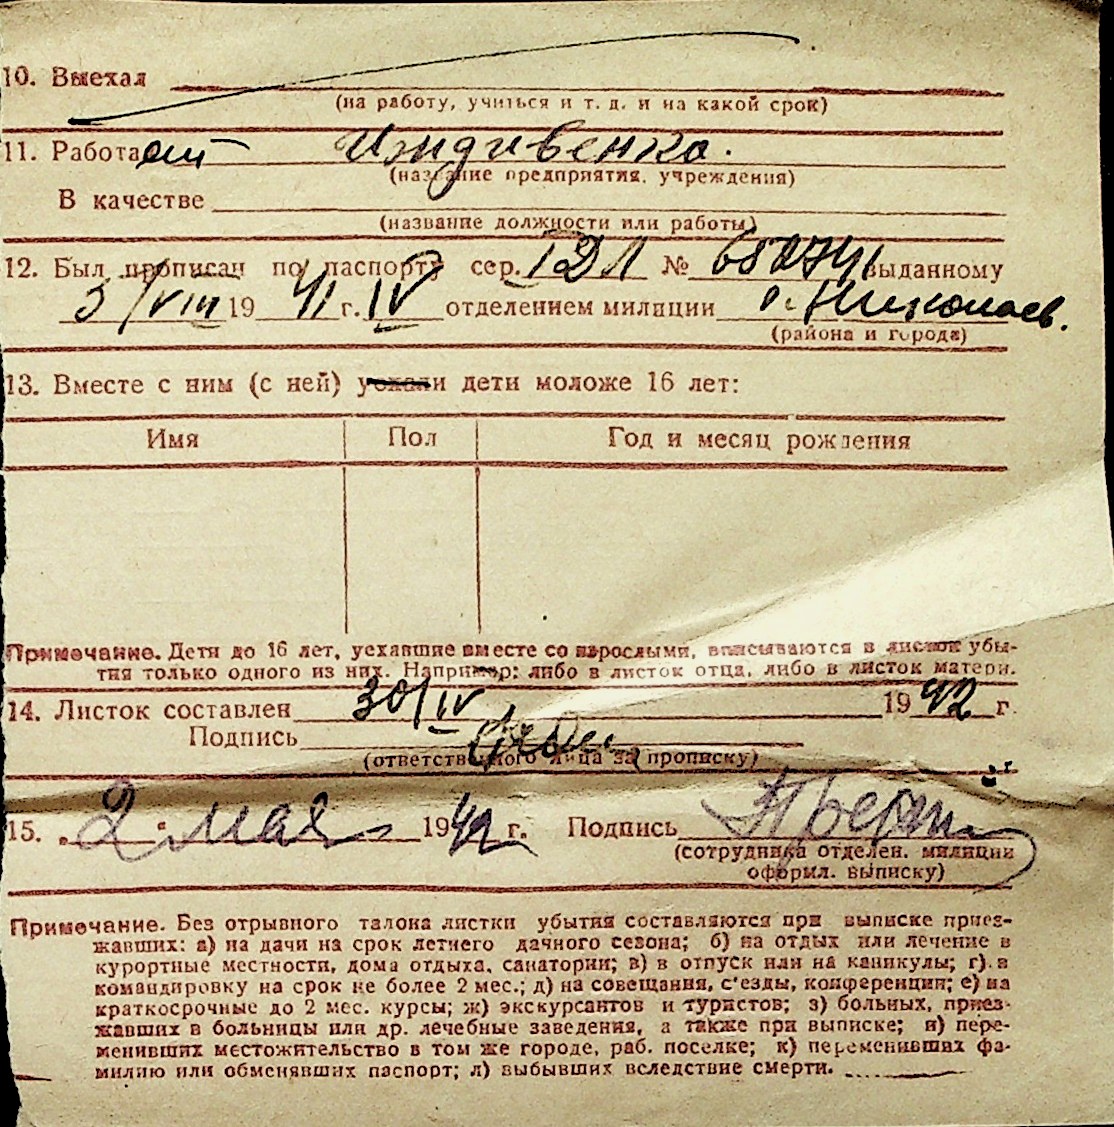 10. Выехал
(на работу, учиться и т. д. и на какой срок)
11. Работает Иждивенка.
(название предприятия, учреждения)
В качестве
(название должности или работы)
12. Был прописан по паспорту сер. № выданному
5/VIII 19 41 г. IV отделением милиции г. Николаев.
(района и города)
13. Вместе с ним (с ней) уехали дети моложе 16 лет:
Имя Пол Год и месяц рождения
Примечание. Дети до 16 лет, уехавшие вместе со взрослыми, вписываются в листок убы-
тия только одного из них. Например: либо в листок отца, либо в листок матери.
14. Листок составлен 30/IV 1942 г.
Подпись
(ответственного лица за прописку)
15. „2“ мая 1942 г. Подпись
(сотрудника отделен. милиции
оформл. выписку)
Примечание. Без отрывного талона листки убытия составляются при выписке приез-
жавших: а) на дачи на срок летнего дачного сезона; б) на отдых или лечение в
курортные местности, дома отдыха, санатории; в) в отпуск или на каникулы; г) в
командировку на срок не более 2 мес.; д) на совещания, с'езды, конференции; е) на
краткосрочные до 2 мес. курсы; ж) экскурсантов и туристов; з) больных, приез-
жавших в больницы или др. лечебные заведения, а также при выписке; и) пере-
менивших местожительство в том же городе, раб. поселке; к) переменивших фа-
милию или обменявших паспорт; л) выбывших вследствие смерти.